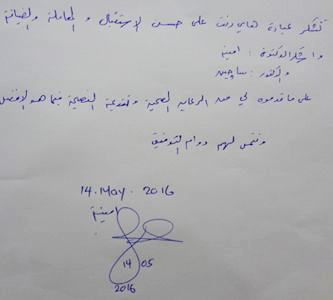 نشكر عيادة هاي دنت على حسن الاستقبال و المعاملة والضيافة
واشكر الدكتورة : امينة
والدكتور : ساچين
على ما قدموه لي من الرعاية الصحية وتقديم النصيحة فيما هو الافضل
ونتمنى لهم دوام التوفيق
14. May. 2016
امينة
14 05
2016